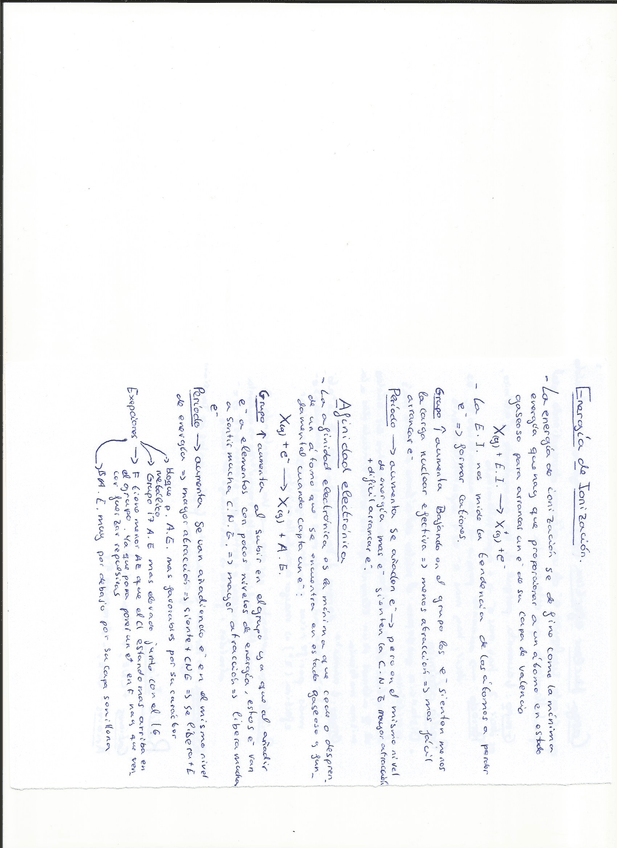 Energía de Ionización
- La energía de ionización se define como la mínima
energía que hay que proporcionar a un átomo en estado
gaseoso para arrancar un e⁻ de su capa de valencia
X(g) + E.I. → X⁺(g) + e⁻
- La E.I. nos mide la tendencia de los átomos a perder
e⁻ => formar cationes.
Grupo ↑ aumenta Bajando en el grupo los e⁻ sienten menos
la carga nuclear efectiva => menos atracción => mas fácil
arrancar e⁻
Periodo → aumenta se añaden e⁻ → pero en el mismo nivel
de energía mas e⁻ sienten la C.N.E mayor atracción
+ dificil arrancar e⁻.
Afinidad electrónica
- La afinidad electrónica es la mínima que cede o despren
de un átomo que se encuentra en estado gaseoso y fun_
damental cuando capta un e⁻.
X(g) + e⁻ → X⁻(g) + A.E.
Grupo ↑ aumenta al subir en el grupo ya que al añadir
e⁻ a elementos con pocos niveles de energía, estos e⁻ van
a sentir mucha C.N.E. => mayor atracción => libera mucha
e⁻
Periodo → aumenta se van añadiendo e⁻ en el mismo nivel
de energía => mayor atracción => siente + CNE => se libera + E
bloque p. A.E. mas favorables por su carácter
metálico.
Grupo 17 A.E mas elevado junto con el 16
Exepciones → F tiene menor AE que el Cl estando mas arriba en
el grupo. Ya que para poner un e⁻ en F hay que ven_
cer repulsiones
A.E. muy por debajo por su capa semillena